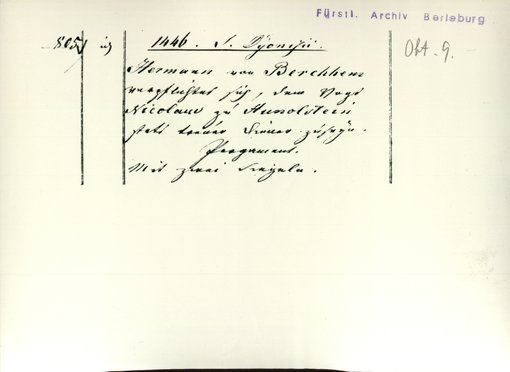 Fürstl. Archiv Berleburg
805 1446. S. Dyonisii. Okt. 9.
Hermann von Berchhem
verpflichtet sich, dem Vogt
Nicolaus zu Hunolstein
stets treuer Diener zu seyn.
Pergament.
Mit zwei Siegeln.